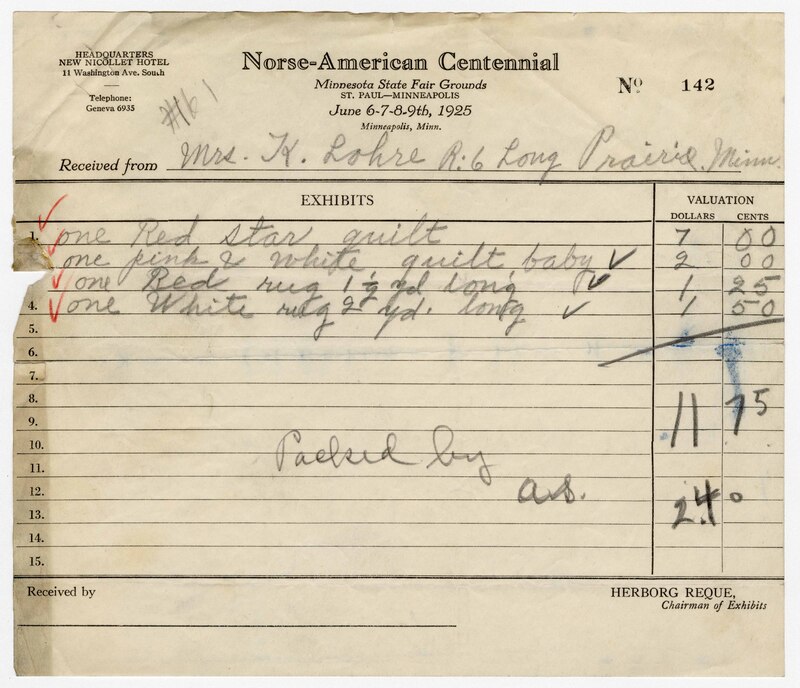 HEADQUARTERS
NEW NICOLLET HOTEL
11 Washington Ave. South
Telephone:
Geneva 6935
#161
Norse-American Centennial
Minnesota State Fair Grounds
ST. PAUL—MINNEAPOLIS
June 6-7-8-9th, 1925
Minneapolis, Minn.
No 142
Received from Mrs. K. Lohre R. 6 Long Prairie, Minn.
EXHIBITS VALUATION
DOLLARS CENTS
1. one Red star quilt 7 00
one pink & white quilt baby ✓ 2 00
one Red rug 1 1/2 yd long ✓ 1 25
4. one White rug 2 yd. long ✓ 1 50
5.
6.
7.
8.
11 75
9.
10.
Packed by
11.
12. a.s.
2.40
13.
14.
15.
Received by
HERBORG REQUE,
Chairman of Exhibits